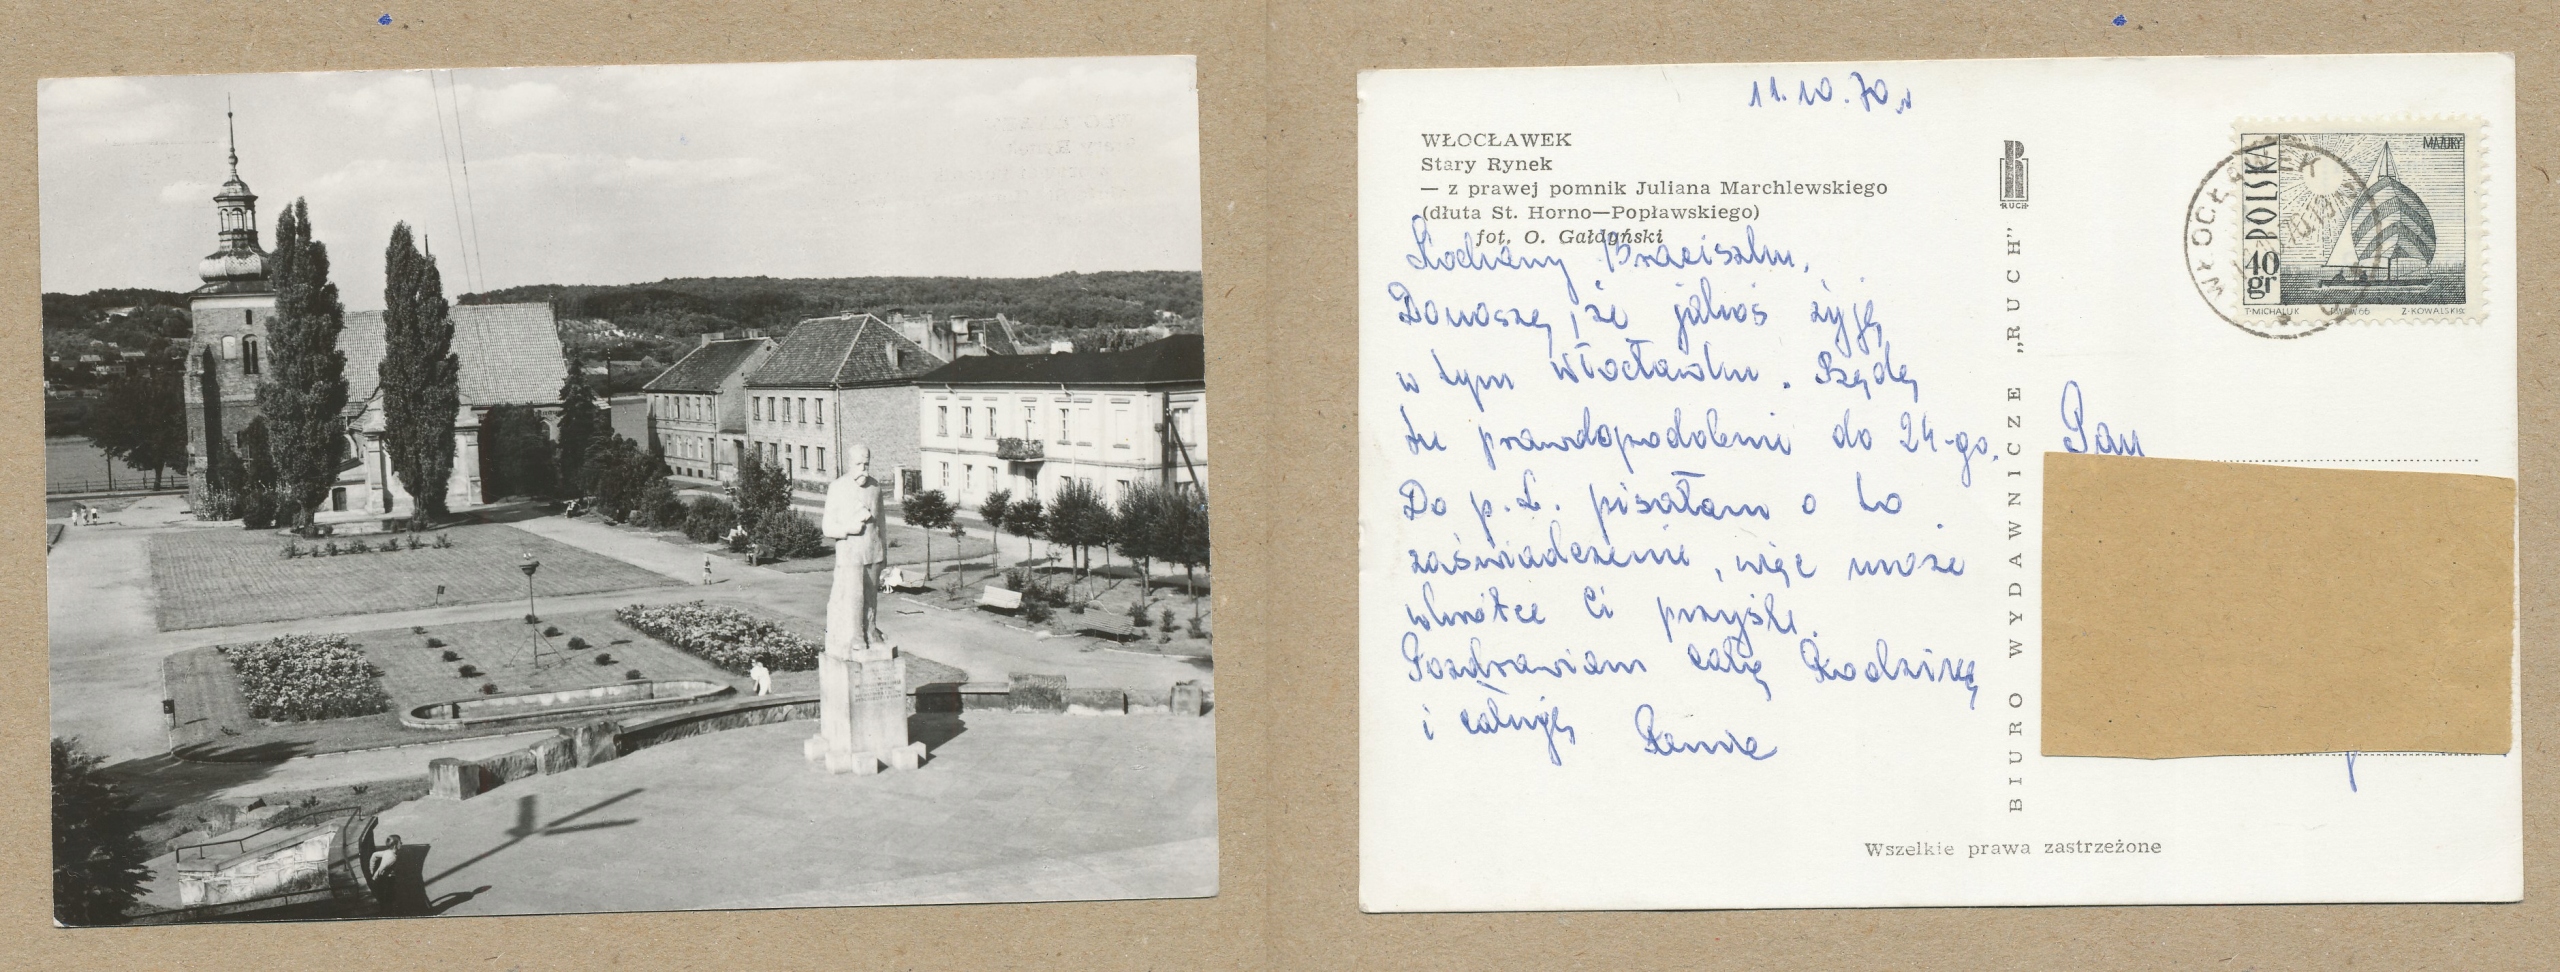 11.10.70r
WŁOCŁAWEK
Stary Rynek
— z prawej pomnik Juliana Marchlewskiego
(dłuta St. Horno—Popławskiego)
fot. O. Gałdyński
Kochany Braciszku,
Donoszę, że jakoś żyję
w tym Włocławku. Będę
tu prawdopodobnie do 24-go.
Do p. L. pisałam o to
zaświadczenie, więc może
wkrótce Ci przyśle.
Pozdrawiam całą Rodzinkę
i całuję
BIURO WYDAWNICZE „RUCH”
RUCH
POLSKA
40
gr
MAZURY
T. MICHALUK
PWPW 66
Z. KOWALSKI
WŁOCŁAWEK
Pan
Wszelkie prawa zastrzeżone